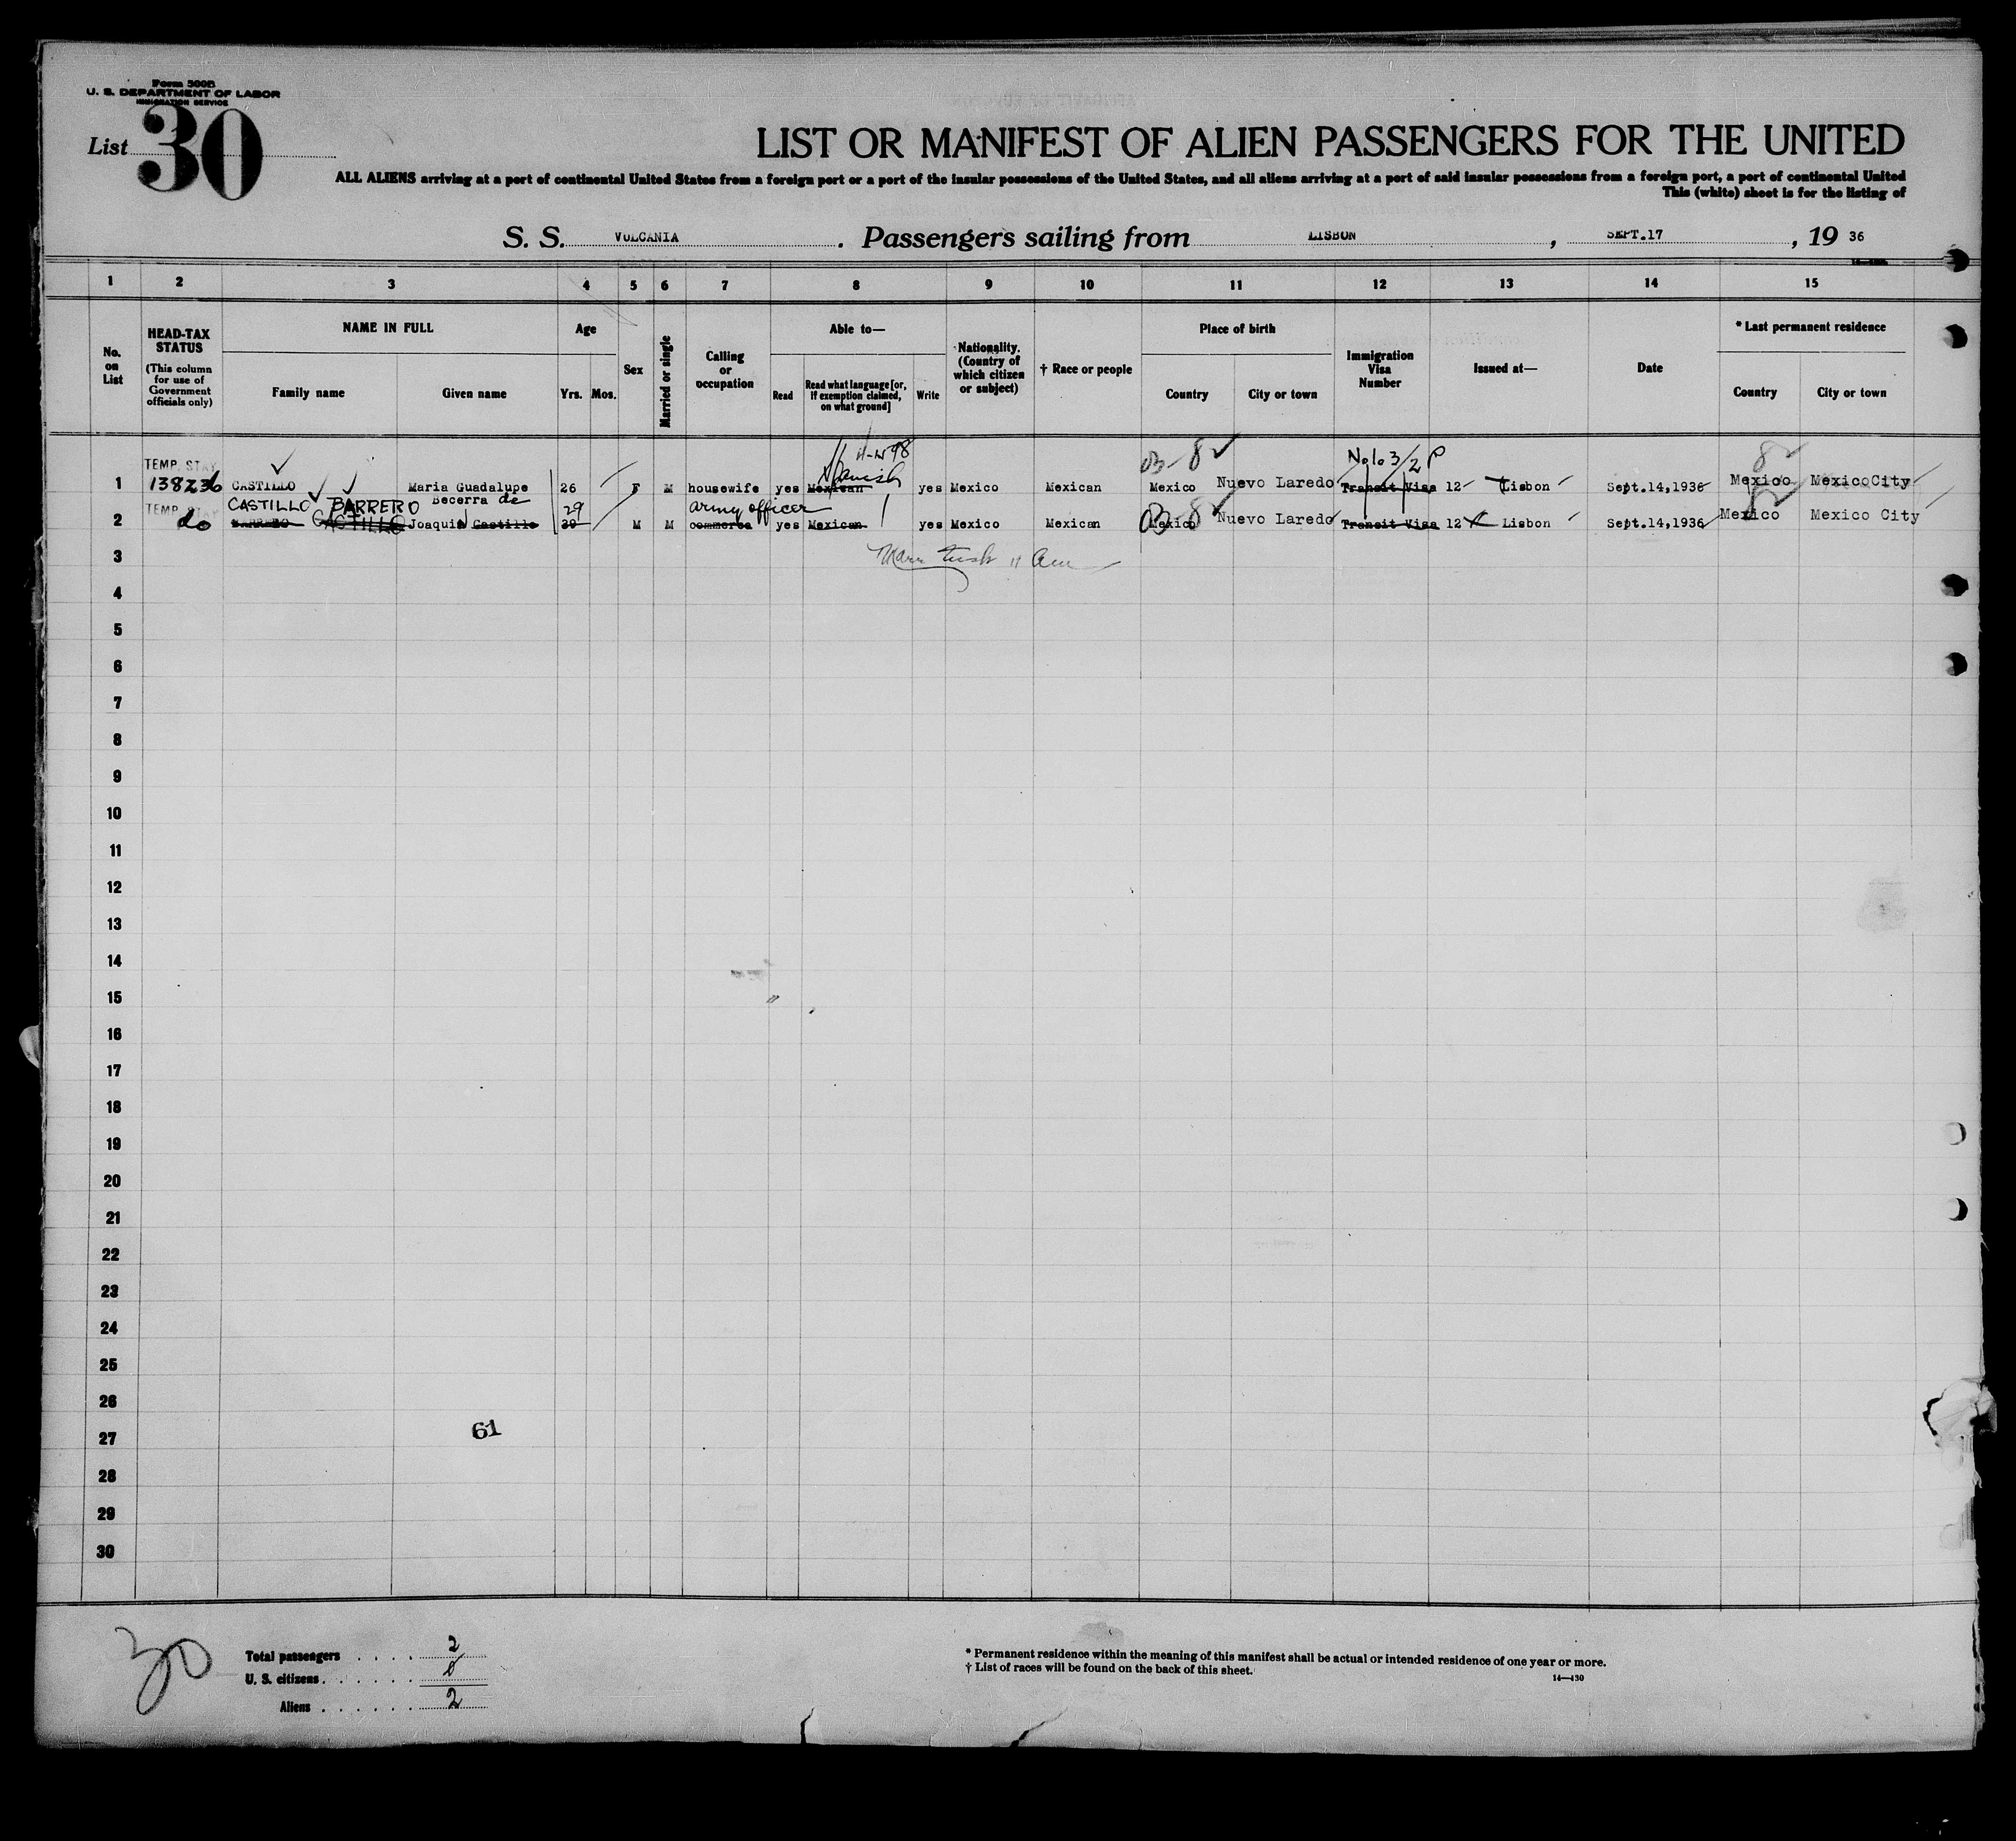 Form 500B
U. S. DEPARTMENT OF LABOR
IMMIGRATION SERVICE
List 30
LIST OR MANIFEST OF ALIEN PASSENGERS FOR THE UNITED
ALL ALIENS arriving at a port of continental United States from a foreign port or a port of the insular possessions of the United States, and all aliens arriving at a port of said insular possessions from a foreign port, a port of continental United
This (white) sheet is for the listing of
S. S. VULCANIA . Passengers sailing from LISBON , SEPT.17 , 19 36
1 2 3 4 5 6 7 8 9 10 11 12 13 14 15
No. on List
HEAD-TAX STATUS
(This column for use of Government officials only)
NAME IN FULL
Family name Given name
Age
Yrs. Mos.
Sex
Married or single
Calling or occupation
Able to—
Read
Read what language [or, if exemption claimed, on what ground]
Write
Nationality. (Country of which citizen or subject)
† Race or people
Place of birth
Country City or town
Immigration Visa Number
Issued at—
Date
* Last permanent residence
Country City or town
TEMP. STAY 8
1 138236 CASTILLO Maria Guadalupe Becerra de 26 F M housewife yes Mexican Spanish yes Mexico Mexican Mexico Nuevo Laredo Transit Visa 12 Lisbon Sept.14,1936 Mexico Mexico City
TEMP. STAY CASTILLO BARRERO 29 army officer
2 do BARRERO CASTILLO Joaquin Castillo 39 M M commerce yes Mexican yes Mexico Mexican Mexico Nuevo Laredo Transit Visa 12 Lisbon Sept.14,1936 Mexico Mexico City
3
4
5
6
7
8
9
10
11
12
13
14
15
16
17
18
19
20
21
22
23
24
25
26
27 61
28
29
30
30
Total passengers . . . . 2
U. S. citizens . . . . . . 0
Aliens . . . . . . 2
* Permanent residence within the meaning of this manifest shall be actual or intended residence of one year or more.
† List of races will be found on the back of this sheet.
14—430